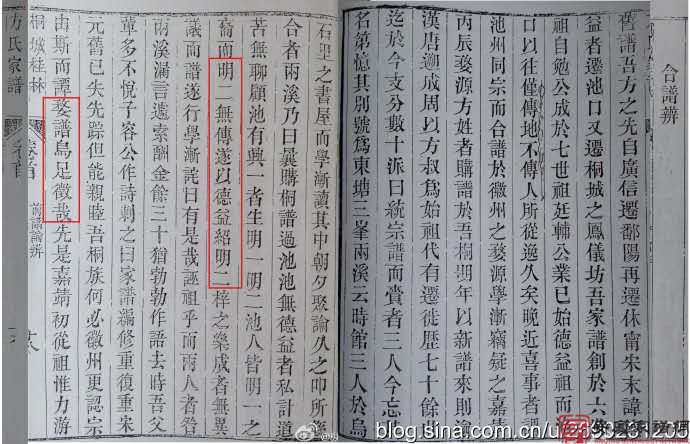 合譜辨
舊譜吾方之先自廣信遷鄱陽再遷休甯宋末諱
益者遷池口又遷桐城之鳳儀坊吾家譜創於六
祖自勉公成於七世祖廷輔公業已始德益祖而
口以往僅傳地不傳人所從逸久矣晚近喜事者
丙辰婺源方姓者購譜於吾桐期年以新譜來則
池州同宗而合譜於徽州之婺源學漸竊疑之嘉
漢唐遡成周以方叔爲始祖代有遷徙歷七十餘
迄於今支分數十派曰統宗譜而賫者三人今忘
名第憶其別號爲東塘三峯兩溪云時館三人於烏
石里之書屋而學漸讀其中朝夕聚論久之叩所
合者兩溪乃曰曩購桐譜過池池無德益者私計道
苦無聊顧池有興一者生明一明二池人皆明一之
裔而明二無傳遂以德益紹明二梓之樂成者無異
議而譜遂行學漸詫曰有是哉誣祖乎而兩人者咎
兩溪漏言遽索酬金餘三十猶勃勃作語去時吾父
輩多不悅子容公作詩刺之曰家譜編修重復重宋
元舊已失先踪但能親睦吾桐族何必徽州更認宗
由斯而譚婺譜烏足徵哉先是嘉靖初從祖惟力游
桐城桂林
方氏家譜
卷首
前譜論辨
blog.sina.com.cn/u